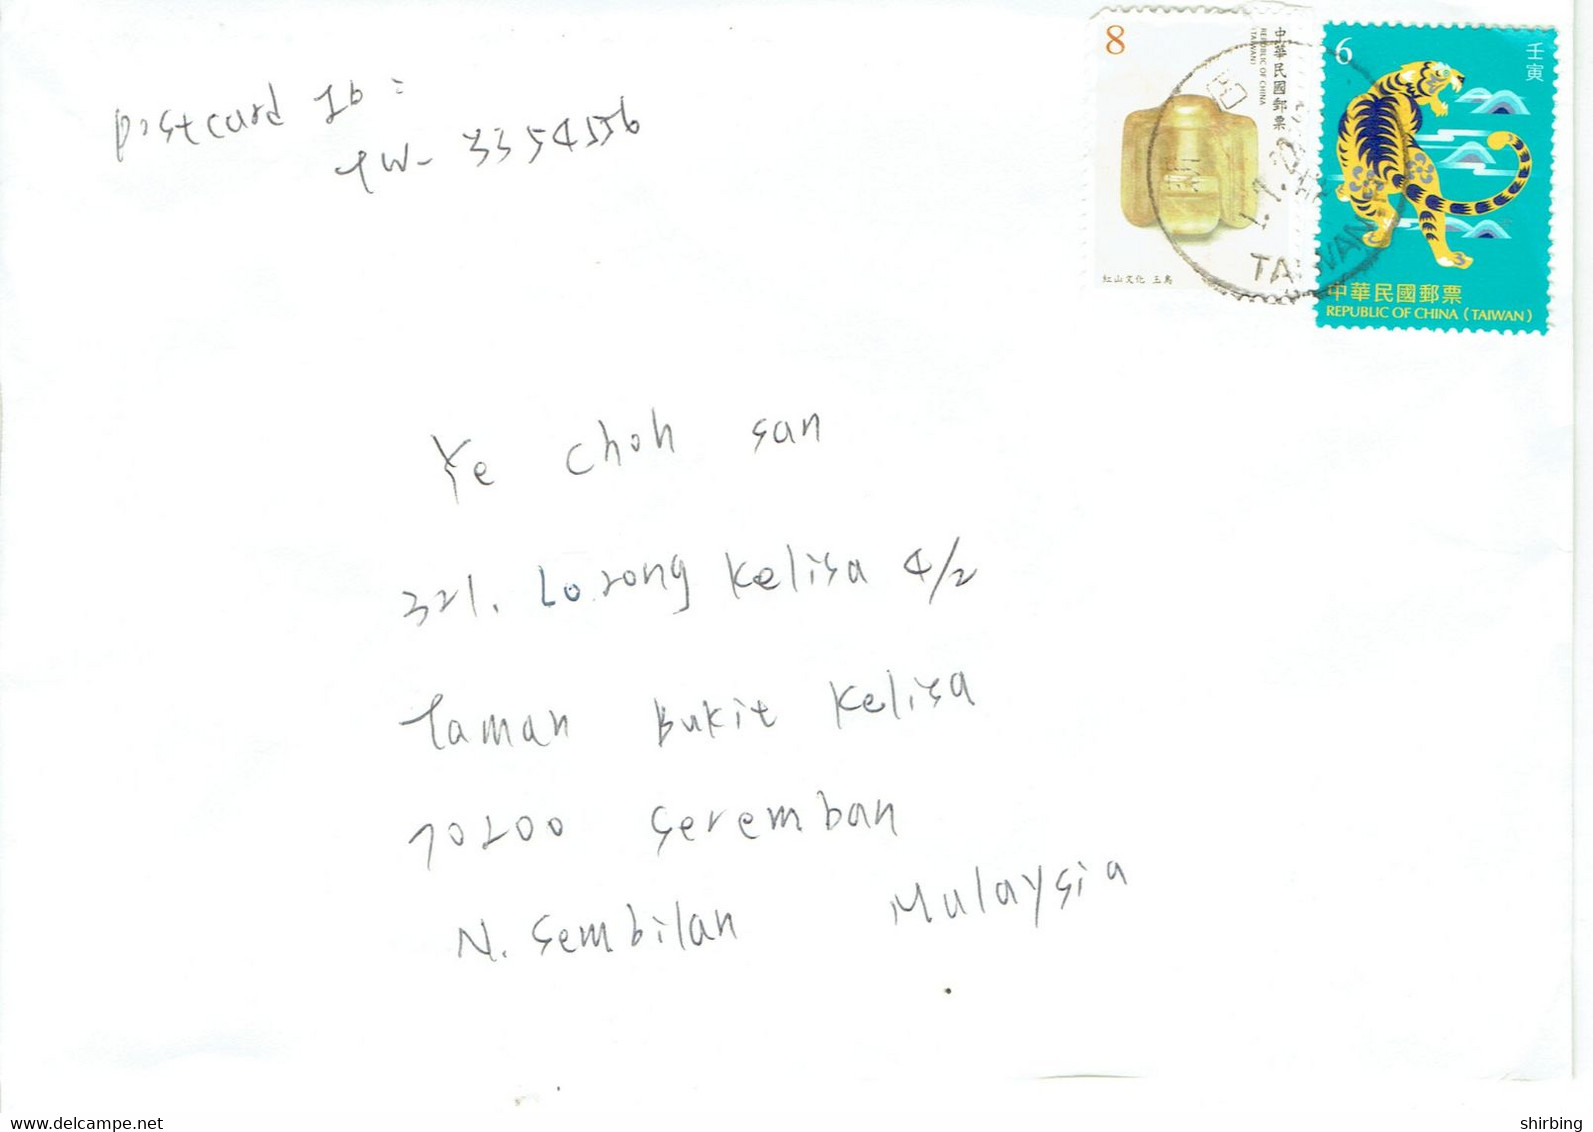 Postcard ID:
TW-3354556
8
中華民國郵票
REPUBLIC OF CHINA
(TAIWAN)
紅山文化 玉鳥
6
壬寅
中華民國郵票
REPUBLIC OF CHINA (TAIWAN)
TAIWAN
Ye Choh San
321. Lorong Kelisa 4/2
Taman Bukit Kelisa
70200 Seremban
N. Sembilan Mulaysia
www.delcampe.net
shirbing